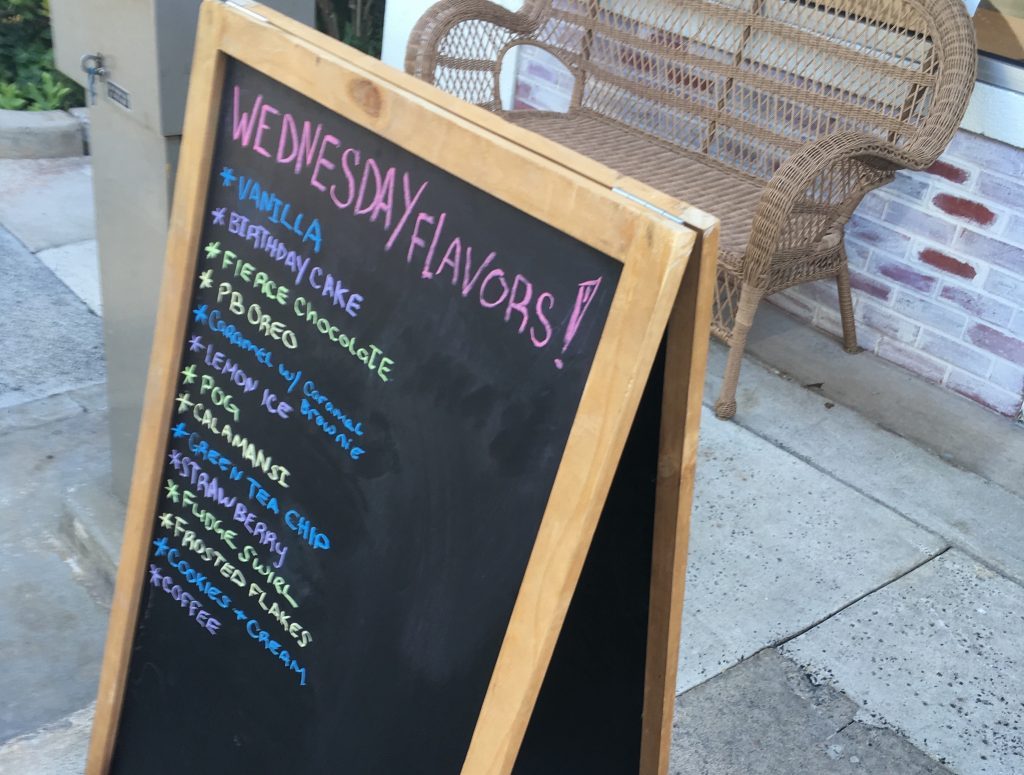 WEDNESDAY FLAVORS!
*VANILLA
*BIRTHDAY CAKE
*FIERCE ChocolaTE
*PB OREO
*Caramel w/ Caramel
Brownie
*LEMON ICE
*POG
*CALAMANSI
*GREEN TEA CHIP
*STRAWBERRY
*FUDGE SWIRL
*FROSTED FLAKES
*COOKIES + CREAM
*COFFEE